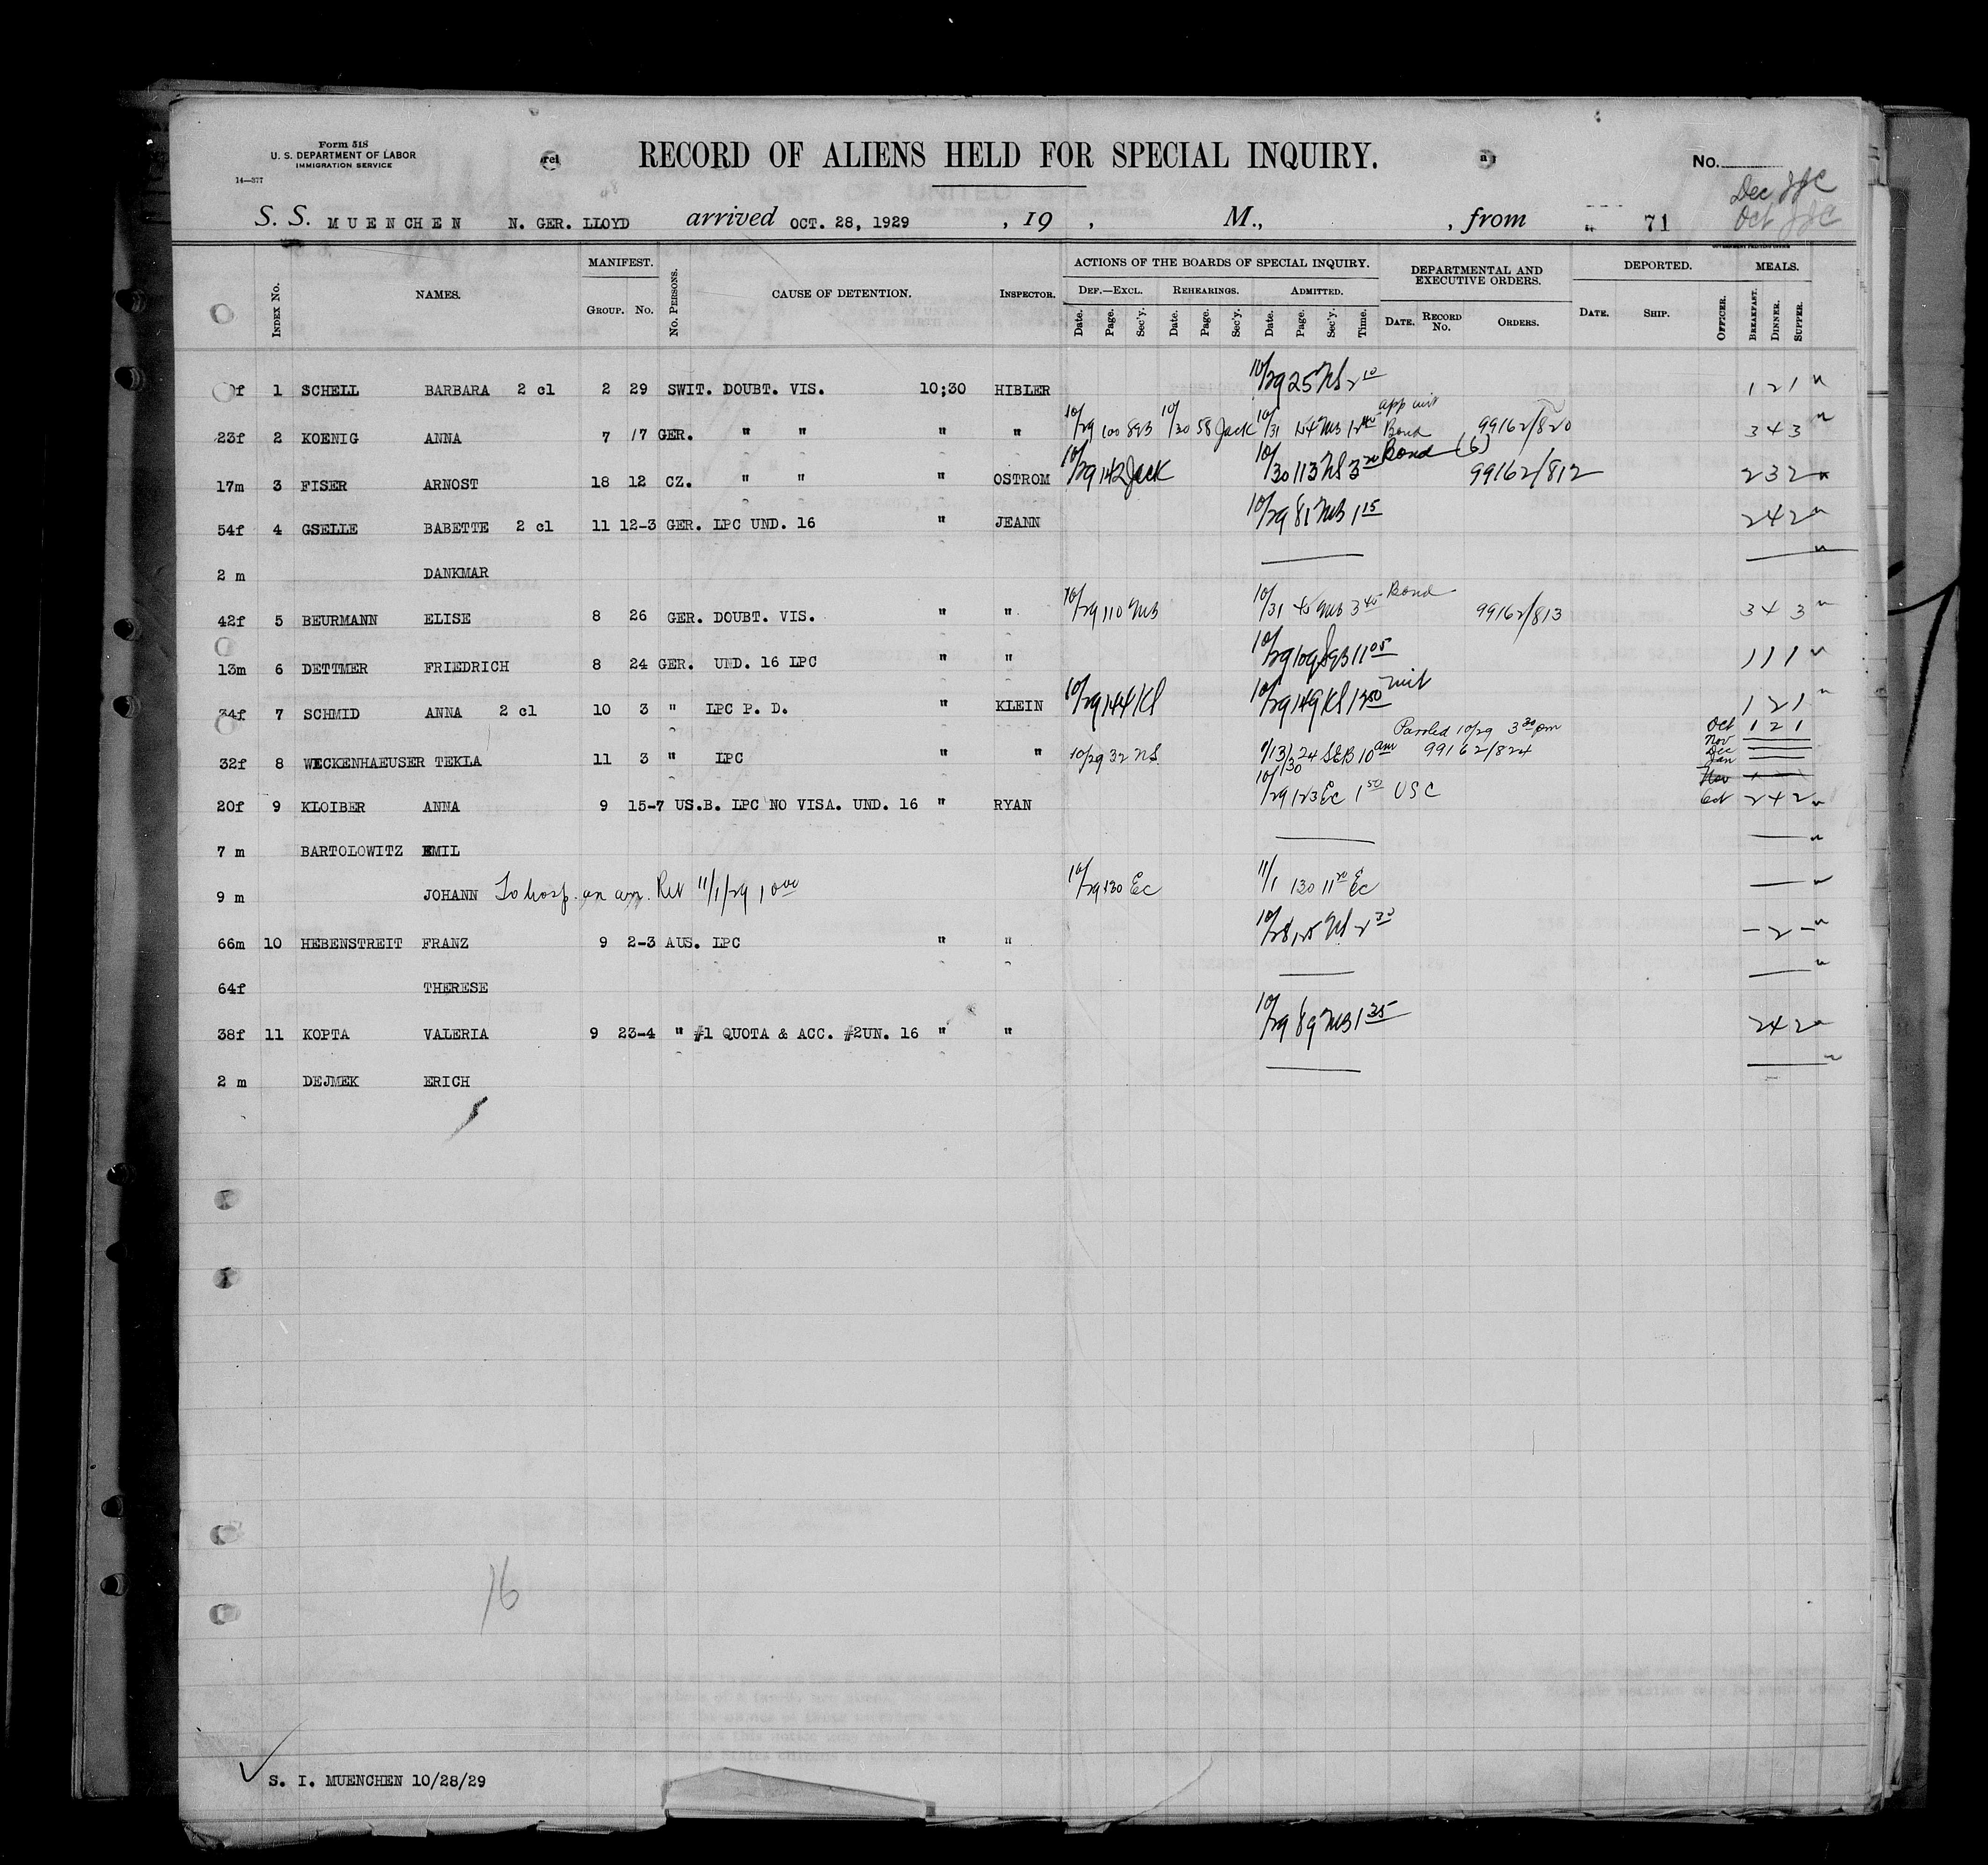 Form 518
U. S. DEPARTMENT OF LABOR
IMMIGRATION SERVICE
14—377
RECORD OF ALIENS HELD FOR SPECIAL INQUIRY.
No.
Dec JJC
S. S. MUENCHEN N. GER. LLOYD arrived OCT. 28, 1929 , 19 , M., , from " 71 Oct JJC
INDEX No. NAMES. MANIFEST. GROUP. No. No. PERSONS. CAUSE OF DETENTION. INSPECTOR. ACTIONS OF THE BOARDS OF SPECIAL INQUIRY. DEF.—EXCL. Date. Page. Sec'y. REHEARINGS. Date. Page. Sec'y. ADMITTED. Date. Page. Sec'y. Time. DEPARTMENTAL AND EXECUTIVE ORDERS. DATE. RECORD No. ORDERS. DEPORTED. DATE. SHIP. OFFICER. MEALS. BREAKFAST. DINNER. SUPPER.
1 SCHELL BARBARA 2 cl 2 29 SWIT. DOUBT. VIS. 10;30 HIBLER 10/29 25 NS 2 10 1 2 1
23f 2 KOENIG ANNA 7 17 GER. " " " " 10/29 100 10/30 58 Jack 10/31 Bond 99162/820 3 4 3
17m 3 FISER ARNOST 18 12 CZ. " " " OSTROM 10/29 142 Jack 10/30 113 NS 3 20 Bond (6) 99162/812 2 3 2
54f 4 GSELLE BABETTE 2 cl 11 12-3 GER. LPC UND. 16 " JEANN 10/29 81 MB 1 15 2 4 2
2 m DANKMAR
42f 5 BEURMANN ELISE 8 26 GER. DOUBT. VIS. " " 10/29 110 MB 10/31 MB 3 45 Bond 99162/813 3 4 3
13m 6 DETTMER FRIEDRICH 8 24 GER. UND. 16 LPC " " 10/29 109 11 05 1 1 1
34f 7 SCHMID ANNA 2 cl 10 3 " LPC P. D. " KLEIN 10/29 144 KS 10/29 149 KS 1 2 1
Paroled 10/29 3 30 pm Oct 1 2 1
Nov
32f 8 WECKENHAEUSER TEKLA 11 3 " LPC " " 10/29 32 NS 1/13/30 24 SEB 10 am 99162/824 Dec
Jan
Nov
20f 9 KLOIBER ANNA 9 15-7 US.B. LPC NO VISA. UND. 16 " RYAN 10/29 123 Ec 1 50 USC Oct 2 4 2
7 m BARTOLOWITZ EMIL
9 m JOHANN To hosp. on arr. Ret 11/1/29 10 00 10/29 130 Ec 11/1 130 11 20 Ec
66m 10 HEBENSTREIT FRANZ 9 2-3 AUS. LPC " " 10/28 NS 2 30 - 2 -
64f THERESE
38f 11 KOPTA VALERIA 9 23-4 " #1 QUOTA & ACC. #2UN. 16 " " 10/29 89 MB 1 35 2 4 2
2 m DEJMEK ERICH
16
S. I. MUENCHEN 10/28/29